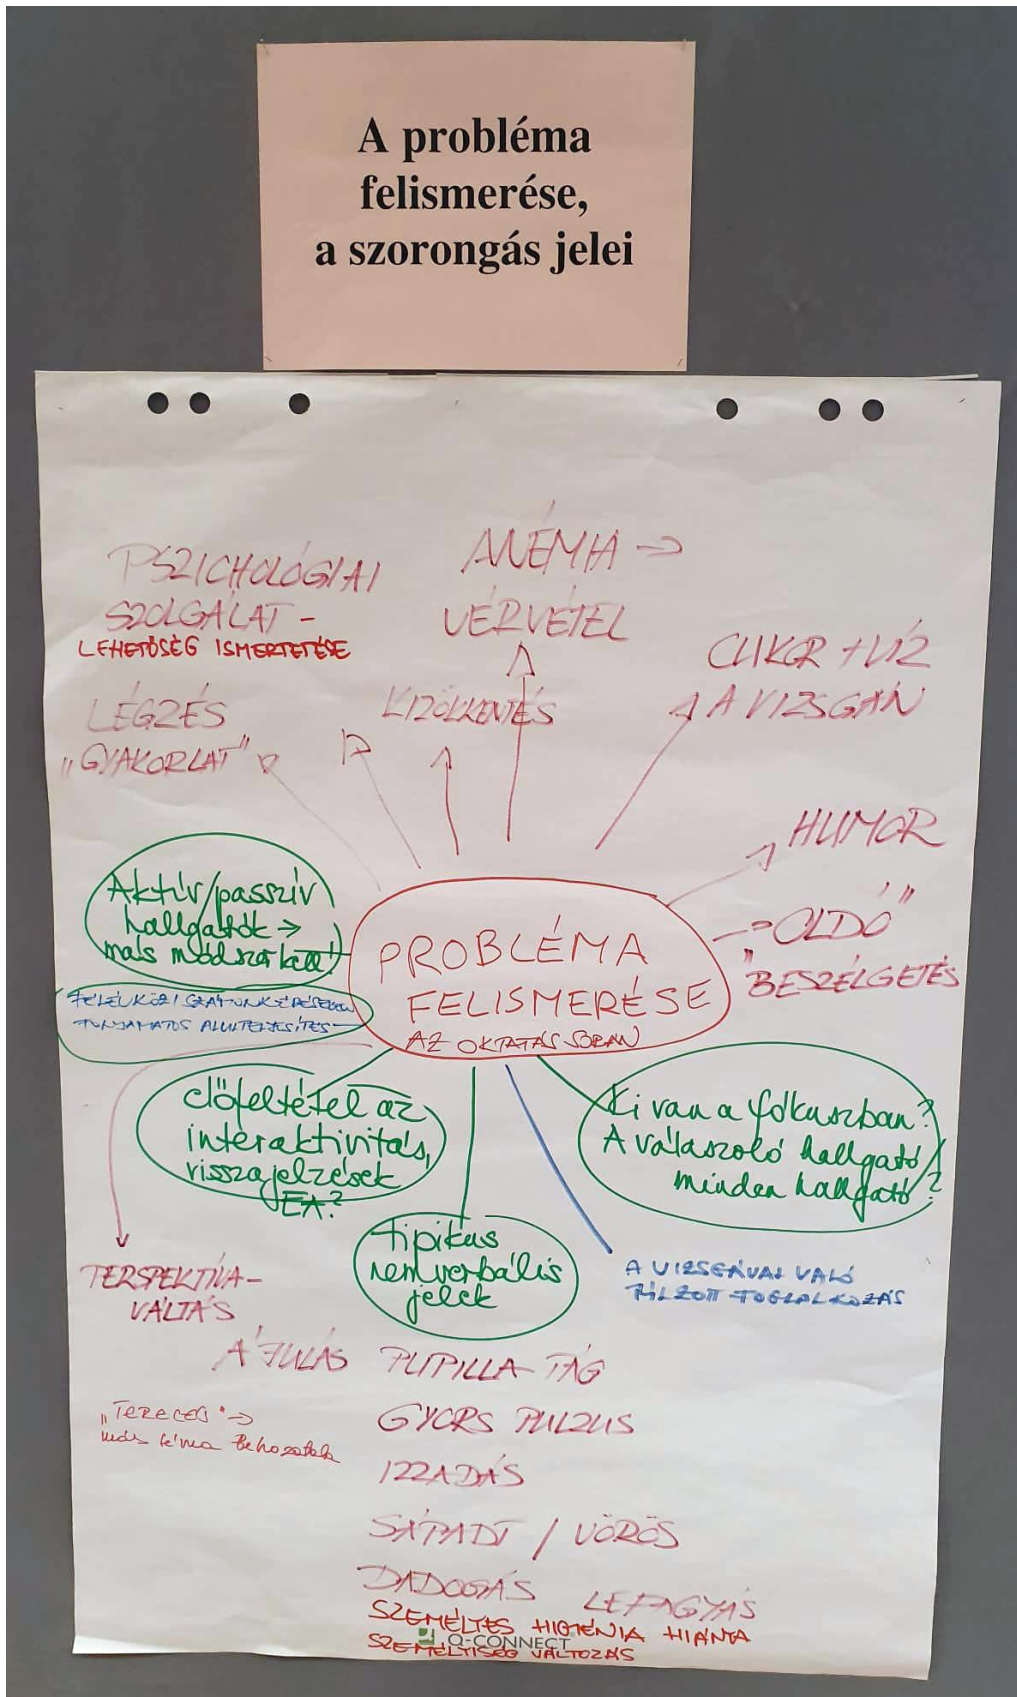 A probléma
felismerése,
a szorongás jelei
PSZICHOLÓGIAI
SZOLGÁLAT -
LEHETŐSÉG ISMERTETÉSE
ANÉMIA →
VÉRVÉTEL
CUKOR + VÍZ
A VIZSGÁN
LÉGZÉS
„GYAKORLAT"
KIZÖKKENTÉS
HUMOR
„OLDÓ"
BESZÉLGETÉS
Aktív/passzív
hallgatók →
más módszer kell!
PROBLÉMA
FELISMERÉSE
AZ OKTATÁS SORÁN
FÉLÉVKÖZI SZÁMONKÉRÉSEKEN
FOLYAMATOS ALULTELJESÍTÉS
előfeltétel az
interaktivitás,
visszajelzések
EA?
Ki van a fókuszban?
A válaszoló hallgató/
minden hallgató?
tipikus
nemverbális
jelek
A VIZSGÁVAL VALÓ
TÚLZOTT FOGLALKOZÁS
PERSPEKTÍVA-
VÁLTÁS
ÁJULÁS PUPILLA TÁG
„TERELÉS" →
más téma behozatala
GYORS PULZUS
IZZADÁS
SÁPADT / VÖRÖS
DADOGÁS LEFAGYÁS
SZEMÉLYES HIGIÉNIA HIÁNYA
SZEMÉLYISÉG VÁLTOZÁS
Q-CONNECT